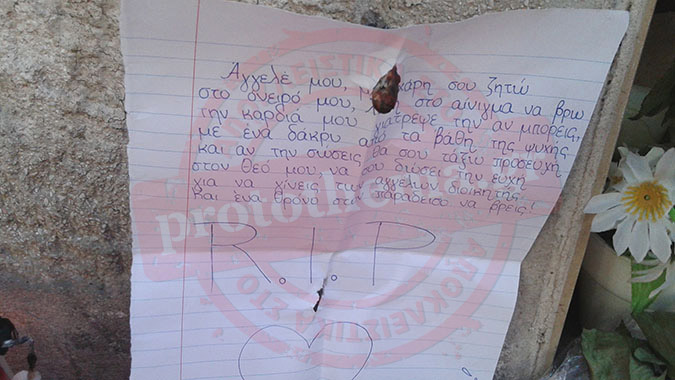 Αγγελέ μου, μια χάρη σου ζητώ
στο όνειρό μου, στο αίνιγμα να βρω
την καρδιά μου γιάτρεψε την αν μπορείς,
με ένα δάκρυ από τα βάθη της ψυχής
και αν την σώσεις θα σου τάξω προσευχή
στον Θεό μου, να σου δώσει την ευχή
για να γίνεις των αγγέλων διοικητής.
Και ένα θρόνο στον παράδεισο να βρεις!
R.I.P
protothema
ΑΠΟΚΛΕΙΣΤΙΚΑ ΣΤΟ